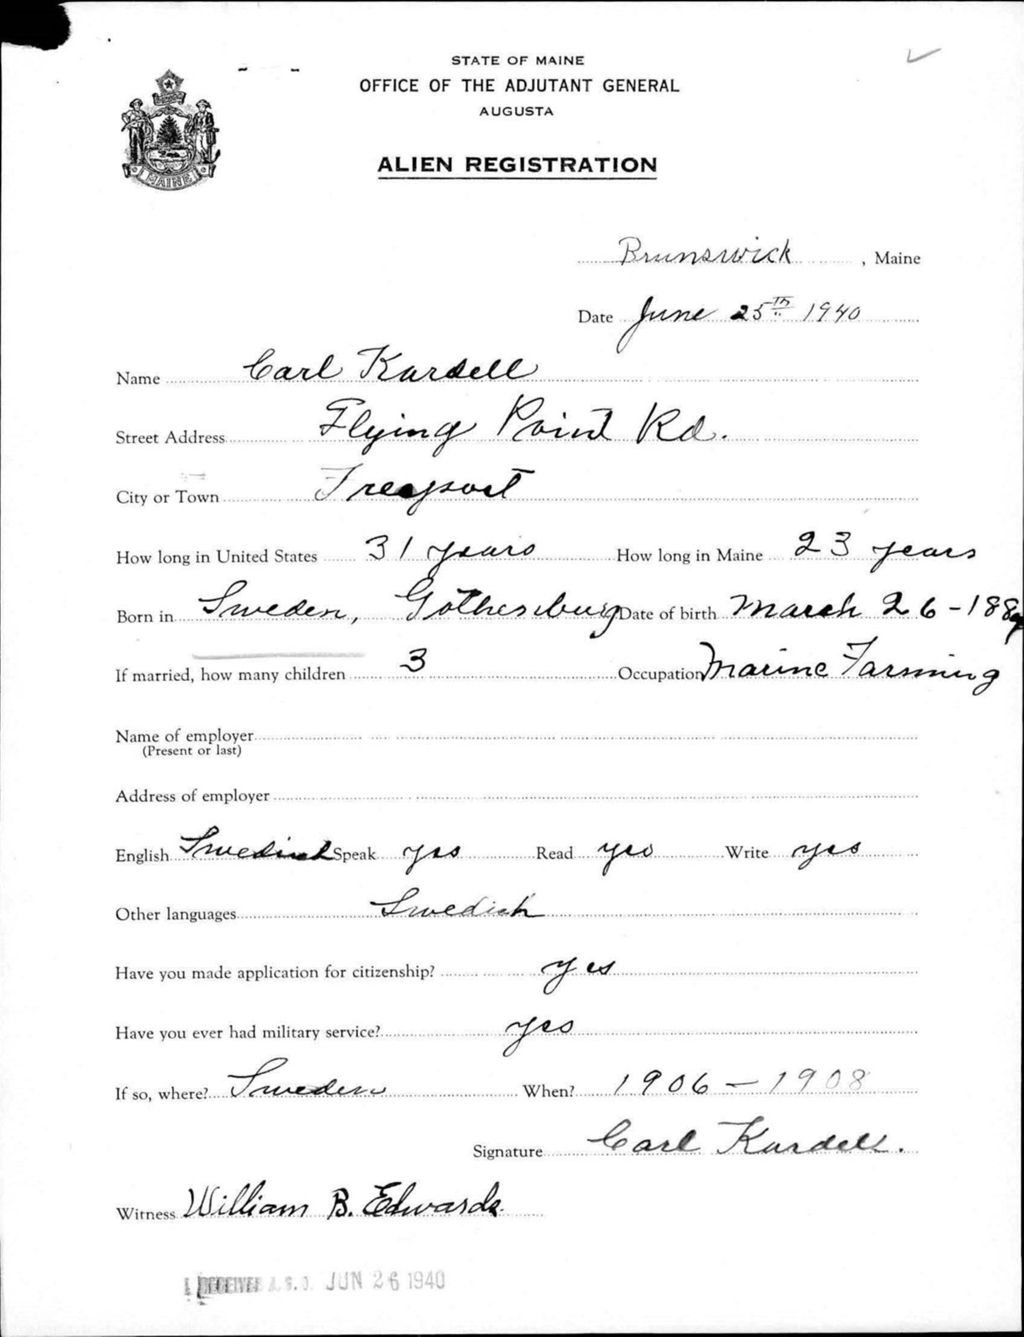 STATE OF MAINE
OFFICE OF THE ADJUTANT GENERAL
AUGUSTA
ALIEN REGISTRATION
MAINE
Brunswick, Maine
Date June 25th 1940
Name Carl Kardell
Street Address Flying Point Rd.
City or Town Freeport
How long in United States 31 years How long in Maine 23 years
Born in Sweden, Gothenburg Date of birth March 26-188
If married, how many children 3 Occupation Marine Farming
Name of employer
(Present or last)
Address of employer
English Swedish Speak yes Read yes Write yes
Other languages Swedish
Have you made application for citizenship? yes
Have you ever had military service? yes
If so, where? Sweden When? 1906 – 1908
Signature Carl Kardell.
Witness William B. Edwards
RECEIVED A.G.O. JUN 26 1940